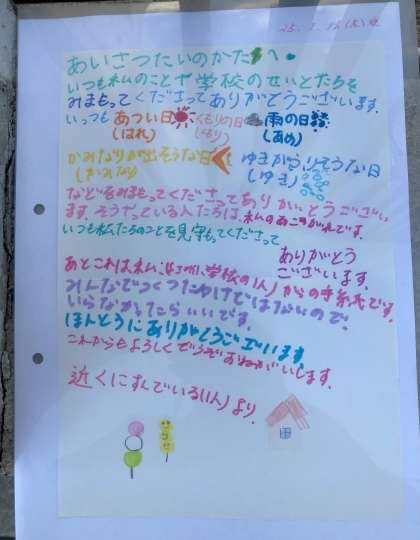 あいさつたいのかたへ
いつも私のことや学校のせいとたちを
みまもってくださってありがとうございます。
いっつも あつい日 くもりの日 雨の日
(はれ) (くもり) (あめ)
かみなりが出そうな日 ゆきがふりそうな日
(かみなり) (ゆき)
などをみまもってくださってありがとうござい
ます。そうやっている人たちは、私のあこがれです。
いつも私たちのことを見守もってくださって
ありがとう
ございます。
あとこれは私 小学校の1人からの手紙です。
みんなでつくったわけではないので、
いらなかったらいいです。
ほんとうにありがとうございます。
これからもよろしくでうぞおねがいします。
近くにすんでいる(1人)より、